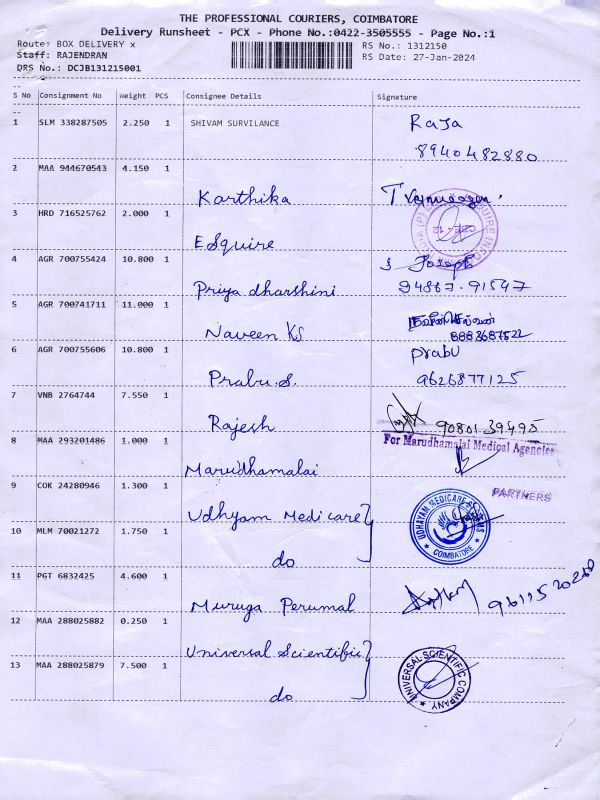 THE PROFESSIONAL COURIERS, COIMBATORE
Delivery Runsheet - PCX - Phone No.:0422-3505555 - Page No.:1
Route: BOX DELIVERY x RS No.: 1312150
Staff: RAJENDRAN RS Date: 27-Jan-2024
DRS No.: DCJB131215001
S No Consignment No Weight PCS Consignee Details Signature
1 SLM 338287505 2.250 1 SHIVAM SURVILANCE Raja
8940482880
2 MAA 944670543 4.150 1
Karthika
3 HRD 716525762 2.000 1
ESquire
4 AGR 700755424 10.800 1
Priya dharshini 94887-91547
5 AGR 700741711 11.000 1
Naveen KS 8883687522
6 AGR 700755606 10.800 1 prabu
Prabu.S. 9626877125
7 VNB 2764744 7.550 1
Rajesh 9080139495
8 MAA 293201486 1.000 1 For Marudhamalai Medical Agencies
Marudhamalai
9 COK 24280946 1.300 1 PARTNERS
Udhyam Medicare UDHAYAM MEDICARE SYSTEMS
10 MLM 70021272 1.750 1 COIMBATORE
do
11 PGT 6832425 4.600 1
Muruga Perumal
12 MAA 288025882 0.250 1
Universal Scientific
13 MAA 288025879 7.500 1 UNIVERSAL SCIENTIFIC COMPANY
do